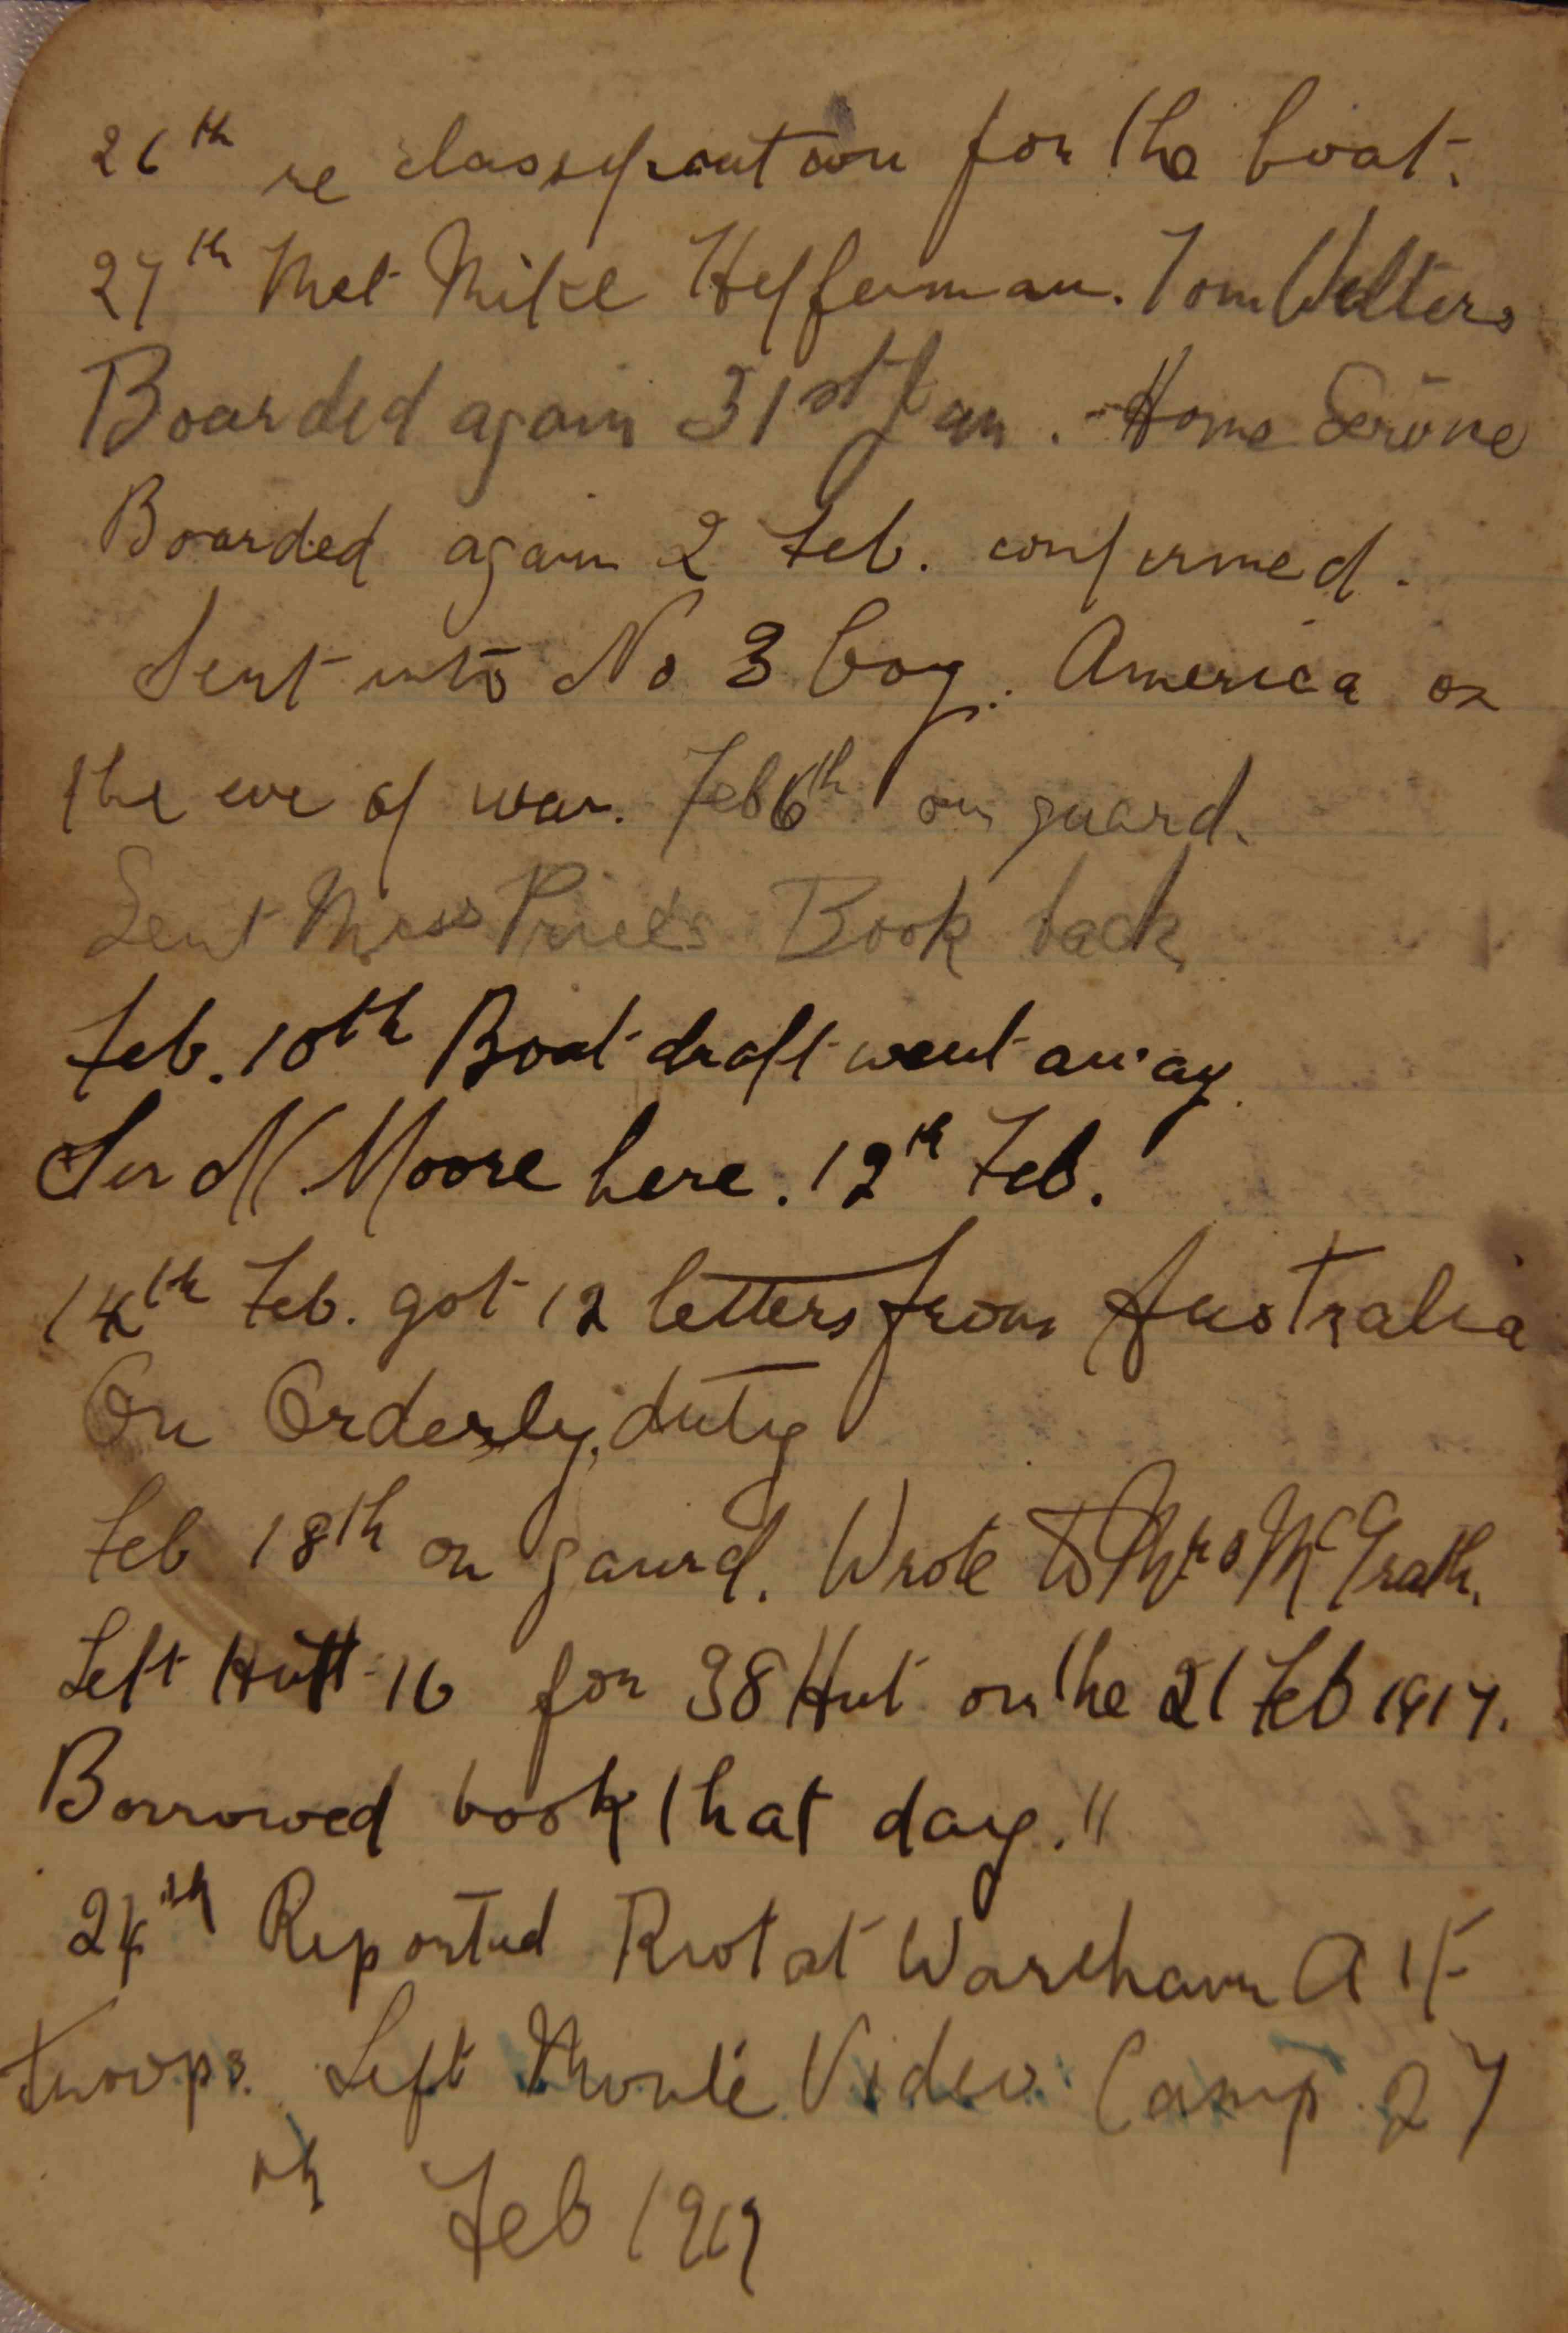 26th re classification for the boat.
27th Met Mike Heffernan. Tom Walters
Boarded again 31st Jan. - Home Service
Boarded again 2 Feb. confirmed.
Sent into No 3 Coy. America on
the eve of war. Feb 6th on guard.
Sent Miss Price's Book back
Feb. 10th Boat draft went away.
Sir N Moore here. 12th Feb.
14th Feb. got 12 letters from Australia
On Orderly duty
Feb 18th on gaurd. Wrote to Mrs McGrath.
Left Hutt 16 for 38 Hut on the 21 Feb 1917.
Borrowed book that day. "
24th Reported Riot at Wareham A I F
troops. Left Monte Video Camp 27
th Feb 1917